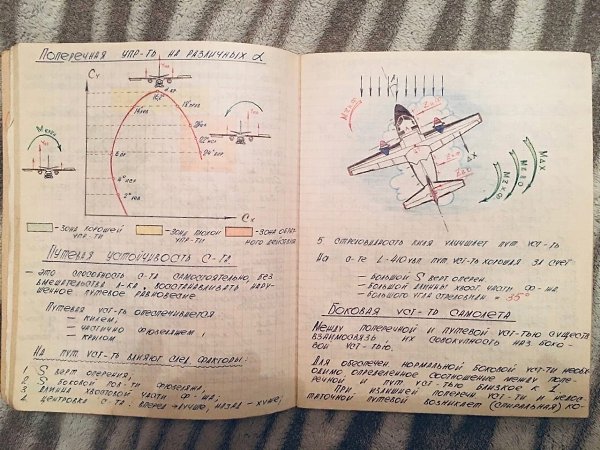 Поперечная упр-ть на различных α
Cy
16,2° α кр
14° пол
18° пол
20° пол
22° пол
24° пол
6° вг
4° пол
2° пол
Cx
- зона хорошей упр-ти
- зона плохой упр-ти
- зона обратного действия
Путевая устойчивость с-та
- это способность с-та самостоятельно, без
вмешательства л-ка, восстанавливать нару-
шенное путевое равновесие
Путевая уст-ть обеспечивается
- килем,
- частично фюзеляжем,
- крылом
На пут уст-ть влияют след факторы:
1. S верт оперения,
2. S боковой пов-ти фюзеляжа,
3. Длинна хвостовой части ф-жа,
4. центровка с-та. вперед → лучше, назад - хуже;
ΔX
5 стреловидность киля улучшает пут уст-ть
На с-те L-410 увп пут уст-ть хорошая за счет
- большой S верт оперен.
- большой длинны хвост части ф-жа
- большого угла стреловидн = 35°
Боковая уст-ть самолета
Между поперечной и путевой уст-тью существ
взаимосвязь их совокупность наз боко-
вой уст-тью.
Для обеспечен нормальной боковой уст-ти необхо-
димо определенное соотношение между попе-
речной и пут уст-тью близкое к 1
При излишней поперечн уст-ти и недос-
таточной путевой возникает (спиральная) ко-